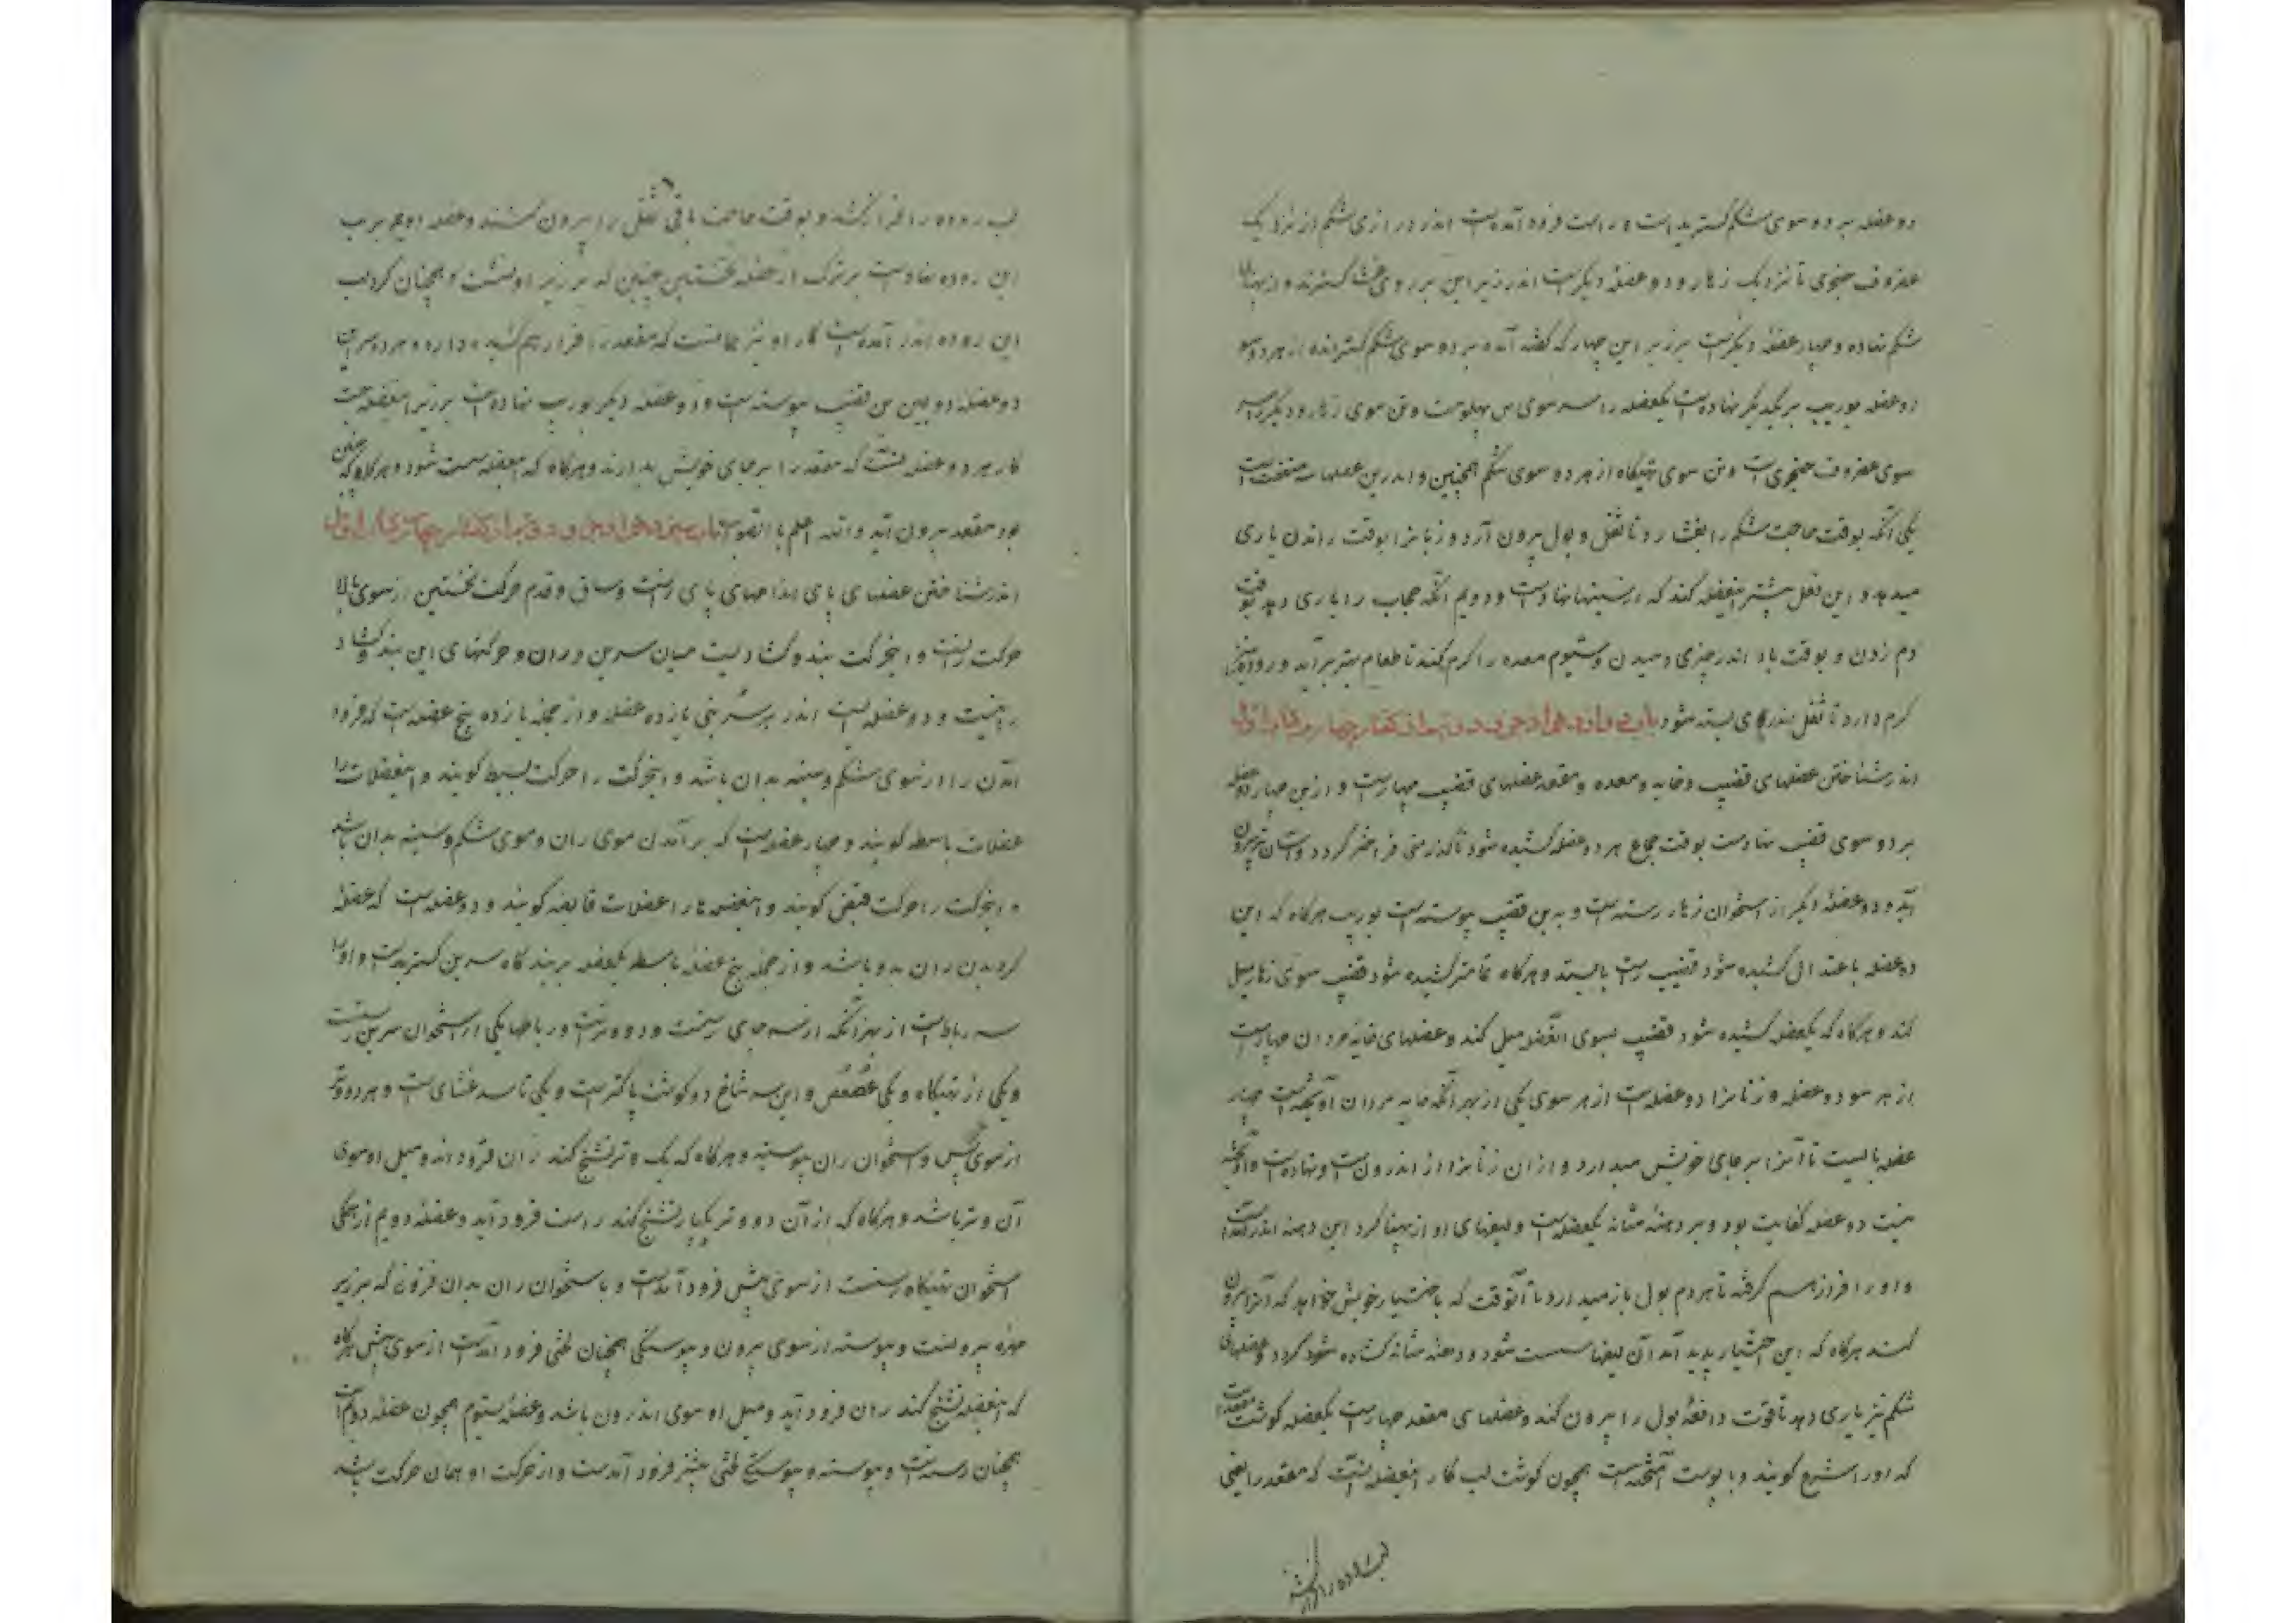 دو عضله بر دو سوی شکم گسترید است و راست فرود آمده است اندر درازی شکم از نزدیک
غضروف حنجری تا نزدیک زهار و دو عضلهٔ دیگرست اندر زیر این بر روی غشا گسترند و از پهنا
شکم نهاده و چهار عضلهٔ دیگرست بر زبر این چهار که گفته آمد بر دو سوی شکم گسترانده از هر دو سو
دو عضله بوریب بر یکدیگر نهاده است یکعضله را سر سوی پهلوست و بن سوی زهار و دیگر را سر
سوی غضروف حنجری است و بن سوی تهیگاه از هر دو سوی شکم همچنین و اندرین عضلها سه منفعت است
یکی آنکه بوقت حاجت شکم را بفشارد تا ثفل و بول بیرون آرد و زنانرا بوقت زادن یاری
میدهد و این فعل بیشتر عضله کند که از پهنا نهادست و دویم آنکه حجاب را یاری دهد بوقت
دم زدن و بوقت باد اندر چیزی دمیدن و سیوم معده را گرم کند تا طعام بهتر برآید و روده نیز
گرم دارد تا ثفل بندرکای بسته شود باب دوازدهم از جزو دوم از گفتار چهارم از کتاب اول
اندر شناختن عضلهای قضیب و خایه و معده و مقعد عضلهای قضیب چهارست و ازین چهار دو عضله
بر دو سوی قضیب نهادست بوقت جماع هر دو عضله کشیده شود تا گذر منی فراختر گردد و آسان تر بیرون
آید و دو عضلهٔ دیگر از استخوان زهار رسته است و به بن قضیب پیوسته است بوریب هرگاه که این
دو عضله باعتدال کشیده شود قضیب راست بایستد و هرگاه تمامتر کشیده شود قضیب سوی زهار میل
کند و هرگاه که یکعضله کشیده شود قضیب بسوی آنعضله میل کند و عضلهای خایه مردان چهارست
از هر سو دو عضله و زنانرا دو عضله است از هر سوی یکی از بهر آنکه خایه مردان آویخته است چهار
عضله بایست تا آنرا بر جای خویش میدارد و از آن زنانرا از اندرونست و نهاده است و آویخته
نیست دو عضله کفایت بود و بر دهنهٔ مثانه یکعضله است و لیفهای او از پهنا گرد این دهنه اندر آمده است
و او را فراز هم گرفته تا هر دم بول باز میدارد تا آنوقت که باختیار خویش خواهد که آنرا بیرون
کند هرگاه که این اختیار پدید آمد آن لیفها سست شود و دهنه مثانه گشاده شود گردد و عضلهای
شکم نیز یاری دهد تا قوت دافعهٔ بول را بیرون کند و عضلهای مقعد چهارست یکعضله گوشت مقعد است
که او را شرج گویند و با پوست آمیخته است همچون گوشت لب کار اینعضله آنست که مقعد را یعنی
لب روده را فراز کشد
لب روده را فراز کشد و بوقت حاجت باقی ثفل را بیرون کند و عضله دویم بر لب
این روده نهادست برترک از عضله نخستین چنین که بر زبر او نشست و همچنان گرد لب
این روده اندر آمده است کار او نیز همانست که مقعد را فراز هم کشیده دارد و هر دو سر این
دو عضله دویین بن قضیب پیوسته است و دو عضله دیگر بوریب نهاده است بر زبر اینعضله است
کار هر دو عضله آنست که مقعد را بر جای خویش بدارند و هرگاه که اینعضله سست شود و هرگاه که چنین
بود مقعد بیرون آید والله اعلم بالصواب باب سیزدهم از جزو دوم از گفتار چهارم از کتاب اول
اندر شناختن عضلهای پای اندامهای پای رانست و ساق و قدم حرکت نخستین از سوی بالا
حرکت رانست و اینحرکت بند و گشادست میان سرین و ران و حرکتهای این بند گشاد
رانست و دو عضله است اندر هر سرینی یازده عضله و از جمله یازده پنج عضله است که فرود
آمدن ران از سوی شکم و سینه بدان باشد و اینحرکت را حرکت بسیط گویند و اینعضلات را
عضلات باسطه گویند و چهار عضله است که بر آمدن سوی ران و سوی شکم و سینه بدان باشد
و اینحرکت را حرکت قبض گویند و اینعضلها را عضلات قابضه گویند و دو عضله است که عضلهٔ
گردیدن ران بدو باشد و از جمله پنج عضلهٔ باسطه یکعضله بر بندگاه سرین گستریدست و او را
سه رباط است از بهر آنکه از سه جای رستست و دو وترست و رباطها یکی از استخوان سرین رستست
و یکی از تهیگاه و یکی عصعص و این سه شاخ دو گوشت پاکترست و یکی تا سه غشای است و هر دو وتر
از سوی پس و استخوان ران پیوسته و هرگاه که یک وتر تشنج کند ران فرود آید و میل او سوی
آن وتر باشد و هرگاه که از آن دو وتر یکبار تشنج کند راست فرود آید و عضلهٔ دویم از همگی
استخوان تهیگاه رستست از سوی پیش فرود آمدست و با استخوان ران بدان فزونی که بر زبر
مهره بیرونست و پیوسته از سوی بیرون و پیوستگی همچنان لختی فرود آمدست از سوی پیش هرگاه
که اینعضله تشنج کند ران فرود آید و میل او سوی اندرون باشد و عضلهٔ سیوم همچون عضله دویم است
همچنان رسته است و پیوسته و پیوستگی لختی بیشتر فرود آمدست و از حرکت او همان حرکت باشد